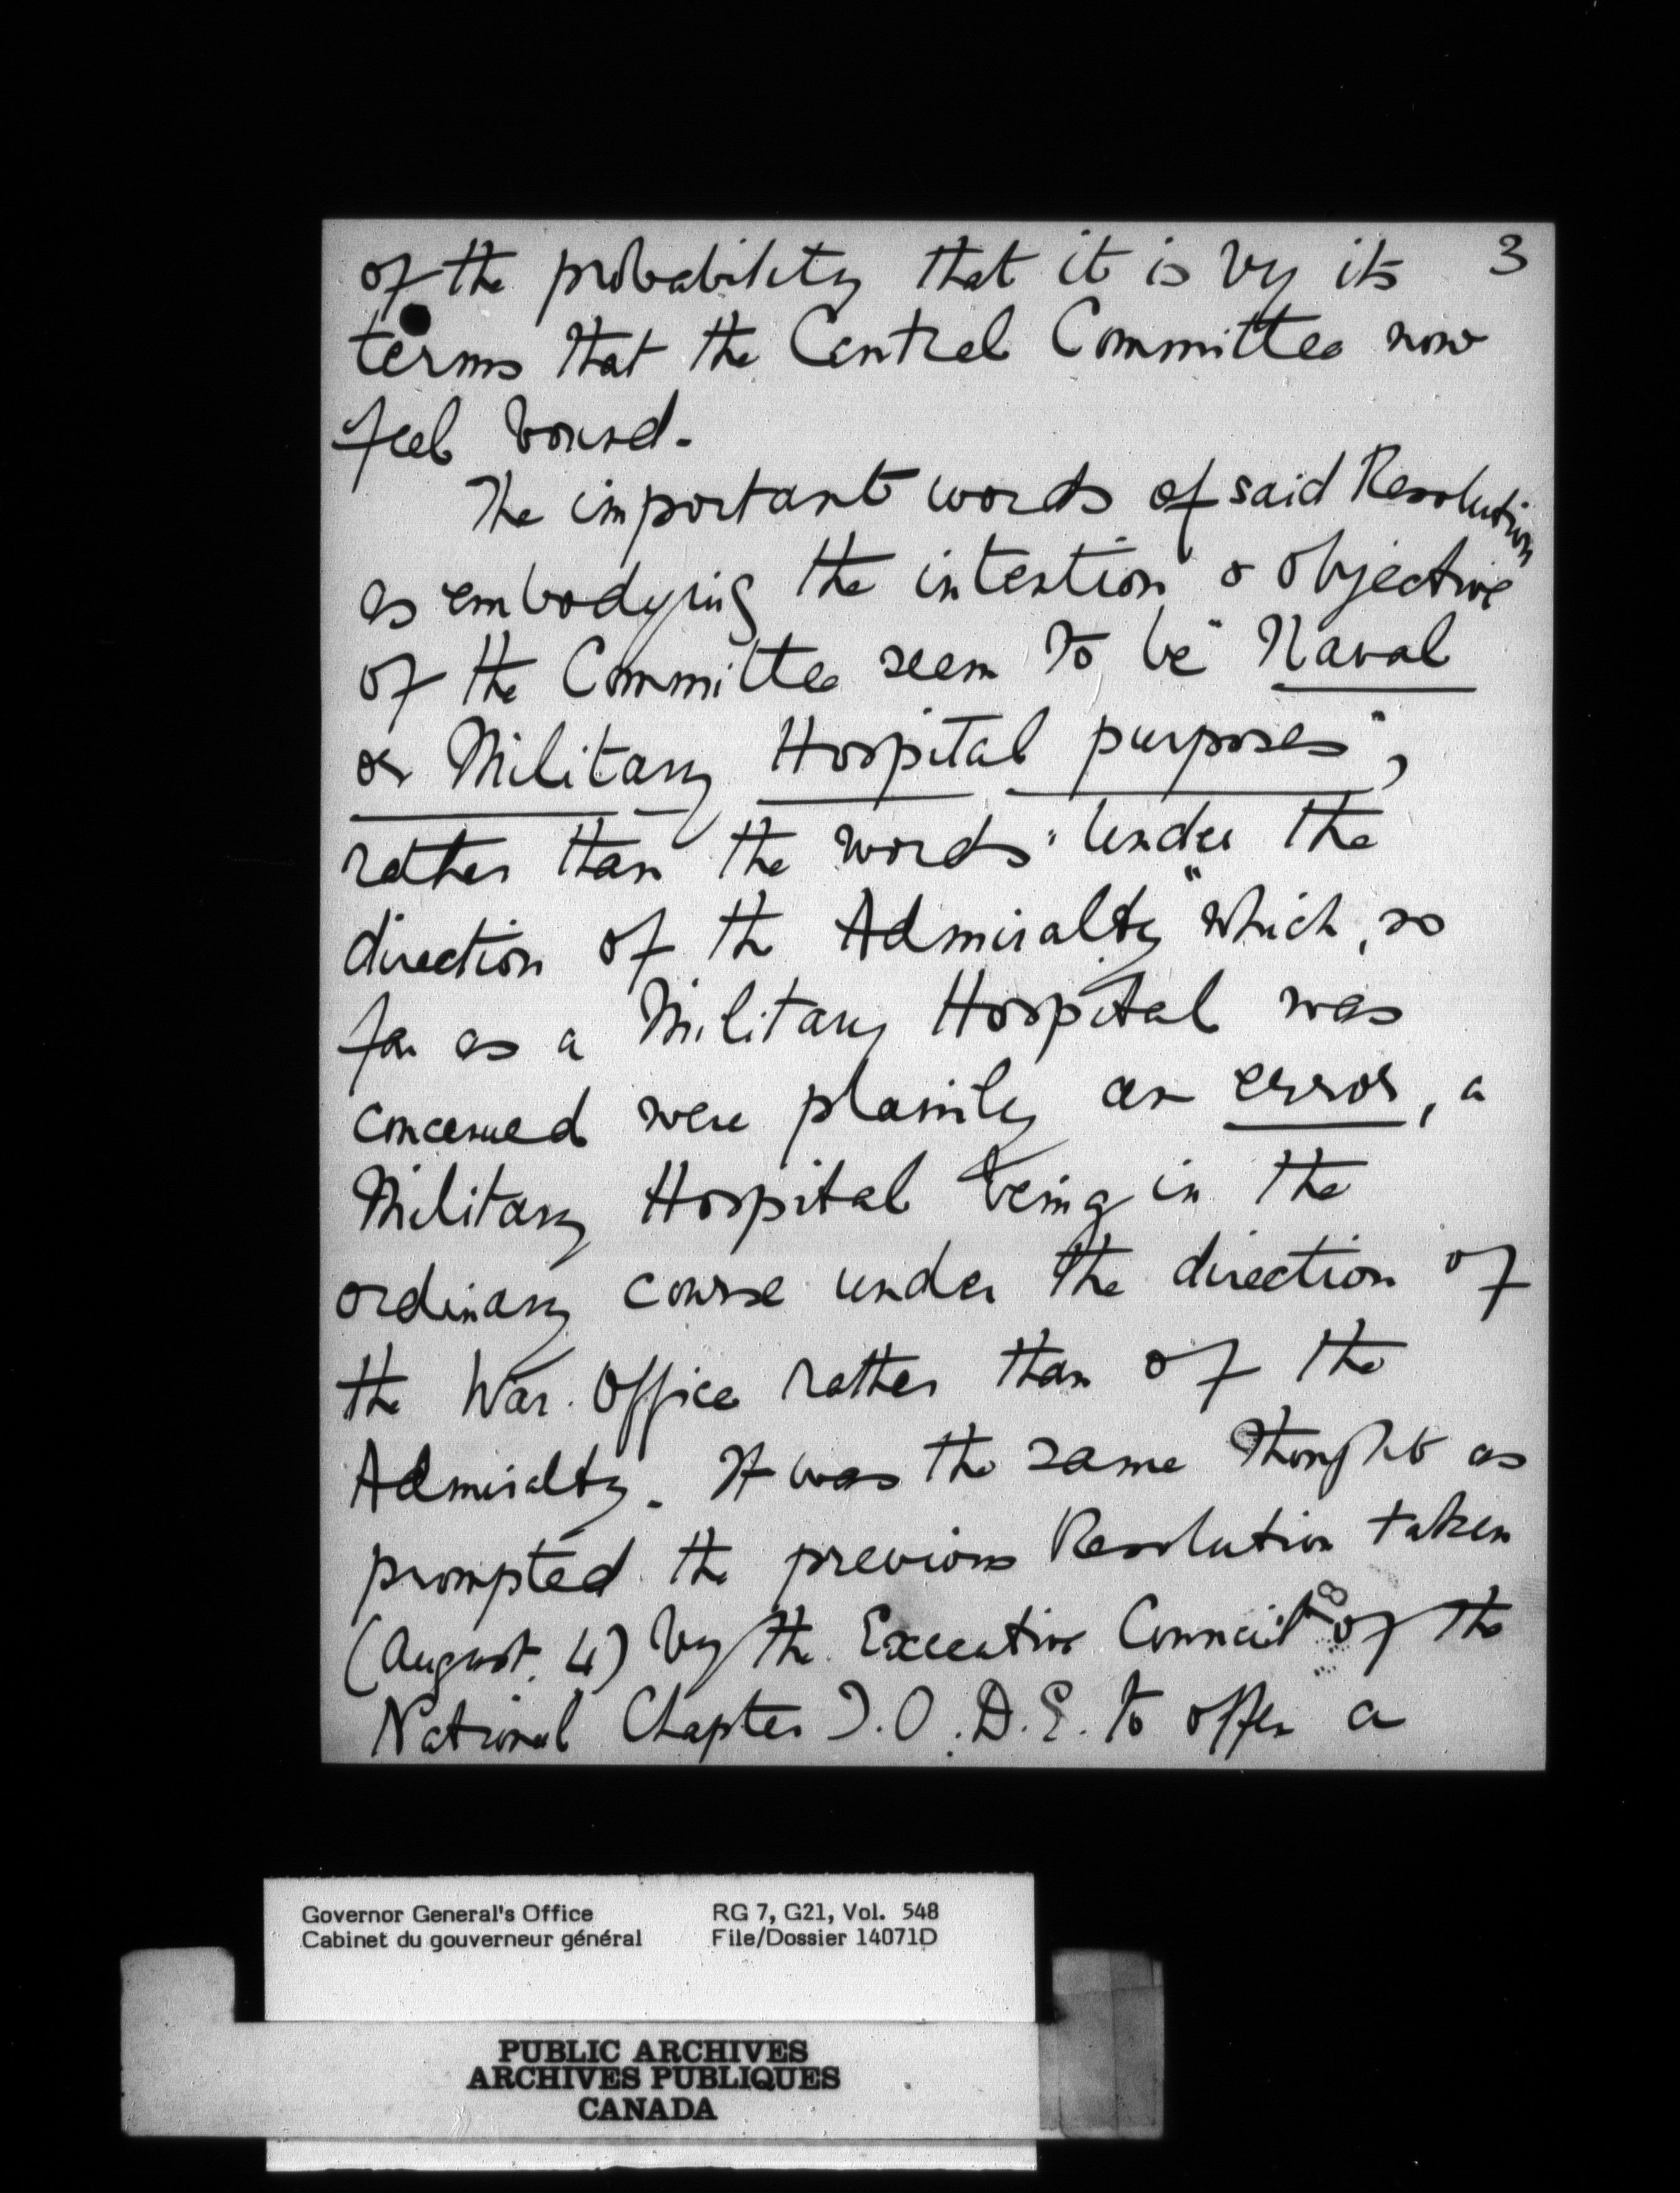 3
of the probability that it is by its
terms that the Central Committee now
feel bound.
The important words of said Resolution
as embodying the intention & objective
of the Committee seem to be "Naval
or Military Hospital purposes",
rather than the words "under the
direction of the Admiralty" which, so
far as a Military Hospital was
concerned were plainly an error, a
Military Hospital being in the
ordinary course under the direction of
the War Office rather than of the
Admiralty. It was the same thought as
prompted the previous Resolution taken
(August 4) by the Executive Council of the
National Chapter I.O.D.E. to offer a
Governor General's Office RG 7, G21, Vol. 548
Cabinet du gouverneur général File/Dossier 14071D
PUBLIC ARCHIVES
ARCHIVES PUBLIQUES
CANADA